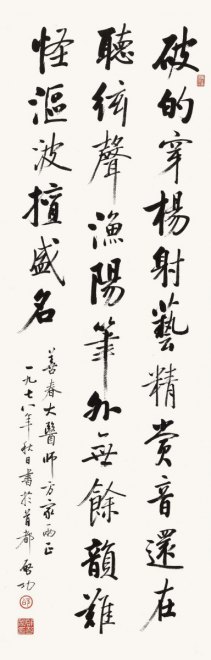 破的穿楊射藝精賞音還在
聽弦聲漁陽筆外無餘韻難
怪漚波擅盛名
善春大醫師方家兩正
一九七八年秋日書於首都 啓功